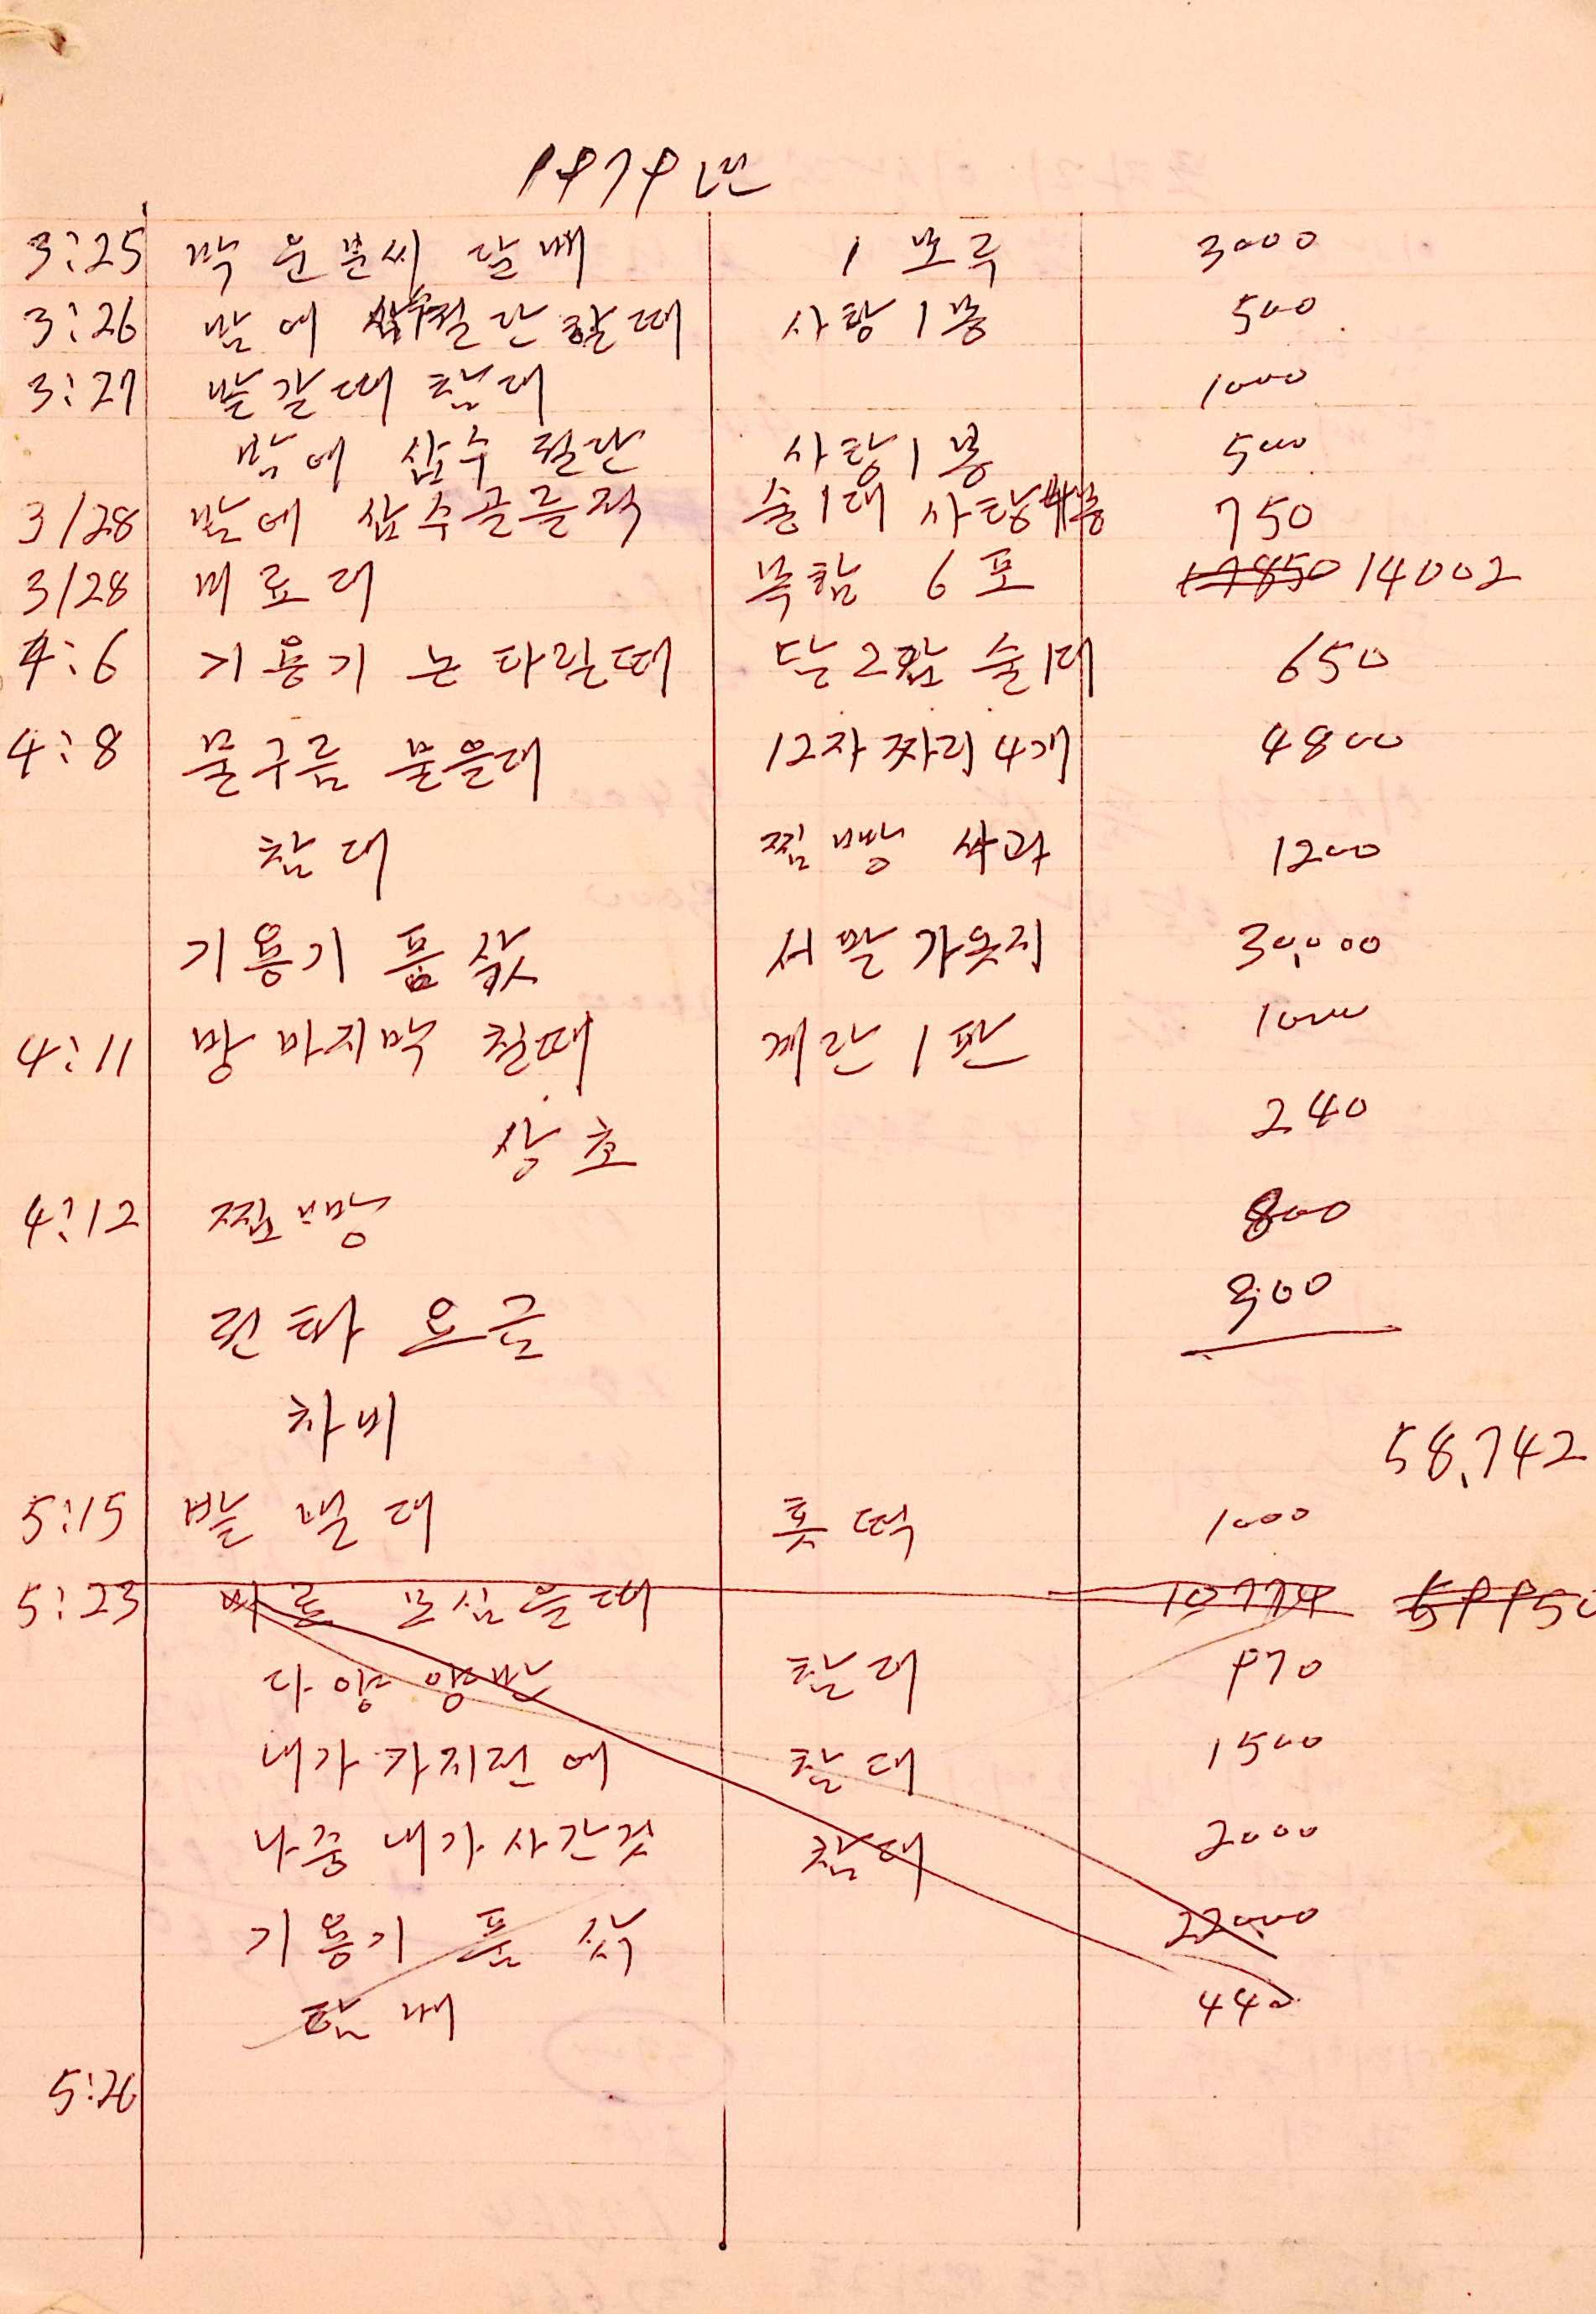 1979년
3:25 박운분씨 담배 1보루 3000
3:26 밤에 삽수절단할때 사탕1봉 500
3:27 밭갈때 참대 1000
밤에 삽수 절단 사탕1봉 500
3/28 밭에 삽수 술1대 사탕 750
3/28 비료대 복합 6포 14002
4:6 기용기 논 술1대 650
4:8 물구름 12자짜리 4개 4800
참대 찜빵 사과 1200
기용기 품삯 서말 가웃지 30,000
4:11 방 마지막 칠때 계란 1판 1000
상호 240
4:12 찜빵 800
린타 요금 900
차비
58,742
5:15 밭 맬대 홋떡 1000
5:23 비료 모심을때 10774
다 양 참대 970
내가 가지전에 참대 1500
나중 내가 사간것 참대 2000
기용기 품삯 22000
담배 440
5:26